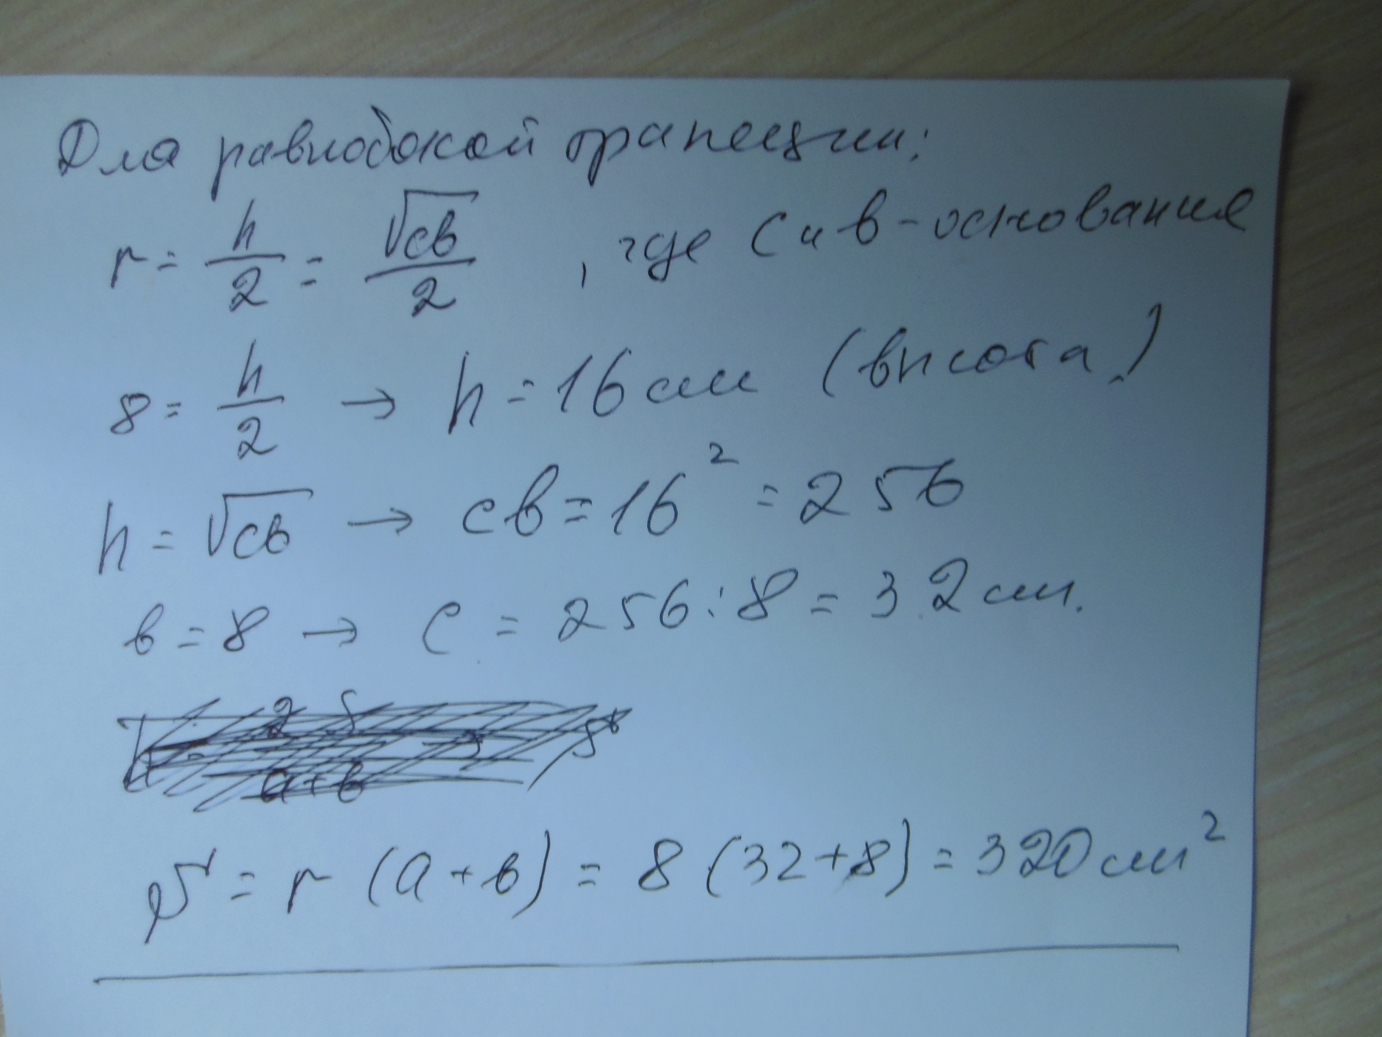 Для равнобокой трапеции:
r = h/2 = √св/2 , где с и в - основания
8 = h/2 → h = 16 см (высота)
h = √св → св = 16² = 256
в = 8 → с = 256 : 8 = 32 см.
S = r (а + в) = 8 (32 + 8) = 320 см²